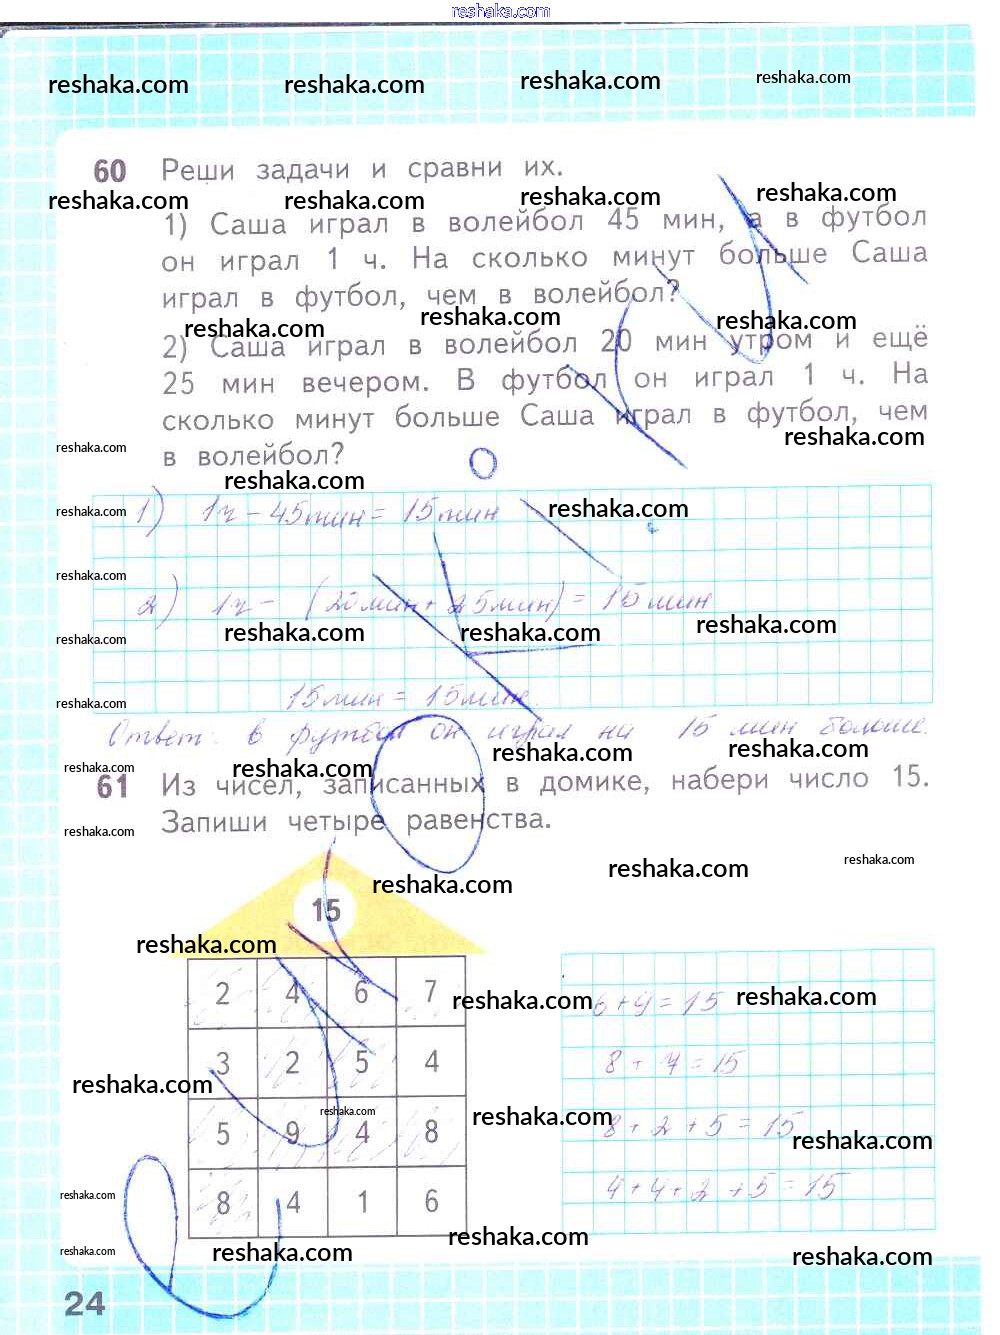 reshaka.com
reshaka.com reshaka.com reshaka.com reshaka.com
60 Реши задачи и сравни их.
reshaka.com reshaka.com reshaka.com reshaka.com
1) Саша играл в волейбол 45 мин, а в футбол
он играл 1 ч. На сколько минут больше Саша
играл в футбол, чем в волейбол?
reshaka.com reshaka.com reshaka.com
2) Саша играл в волейбол 20 мин утром и ещё
25 мин вечером. В футбол он играл 1 ч. На
сколько минут больше Саша играл в футбол, чем
reshaka.com reshaka.com
в волейбол?
reshaka.com
reshaka.com reshaka.com
1) 1ч - 45мин = 15мин
reshaka.com
2) 1ч - (20мин + 25мин) = 15мин
reshaka.com reshaka.com reshaka.com reshaka.com
15мин = 15мин.
reshaka.com
Ответ: в футбол он играл на 15 мин больше.
reshaka.com reshaka.com reshaka.com reshaka.com
61 Из чисел, записанных в домике, набери число 15.
Запиши четыре равенства.
reshaka.com
reshaka.com reshaka.com reshaka.com
15
reshaka.com
2 4 6 7
reshaka.com reshaka.com
6+9=15
3 2 5 4
8+7=15
reshaka.com
reshaka.com reshaka.com
5 9 4 8
8+2+5=15
reshaka.com
8 4 1 6
4+4+2+5=15
reshaka.com
reshaka.com reshaka.com reshaka.com reshaka.com
24